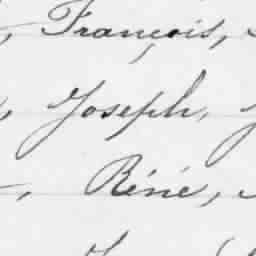 , François,
, Joseph,
, Réné,